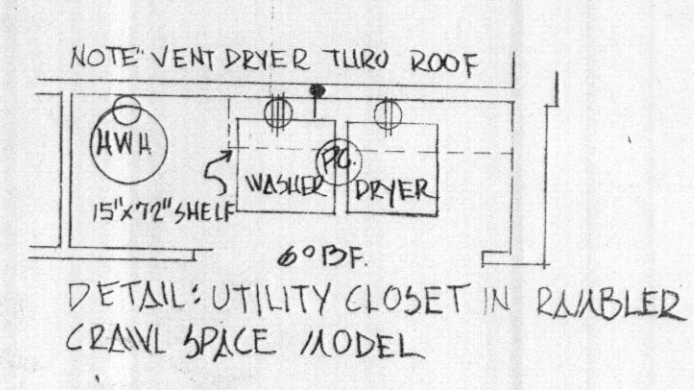 NOTE" VENT DRYER THRU ROOF
HWH
P.C.
WASHER
DRYER
15"x72" SHELF
6⁰ BF.
DETAIL: UTILITY CLOSET IN RAMBLER
CRAWL SPACE MODEL